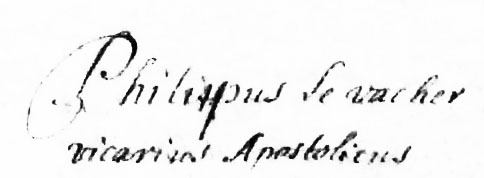 Philippus le vacher
vicarius Apostolicus